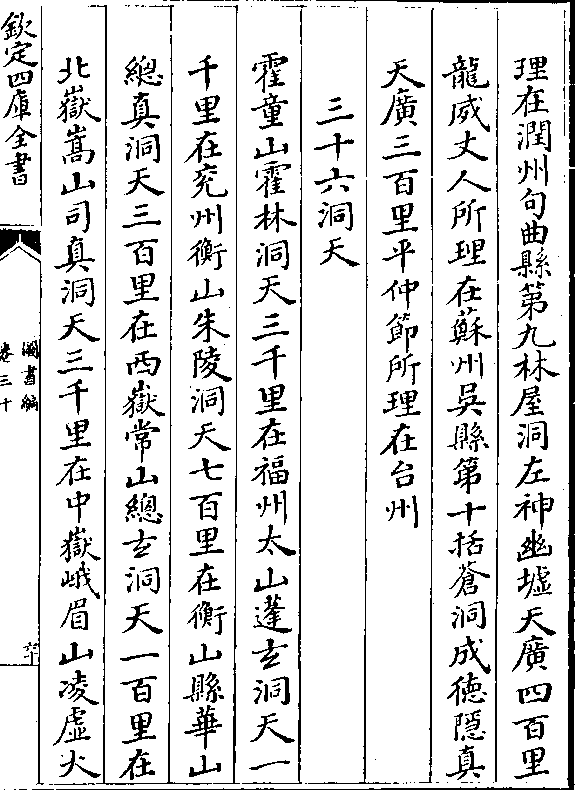 理在潤州句曲縣第九林屋洞左神幽墟天廣四百里
龍威丈人所理在蘇州吳縣第十括蒼洞成德隱真
天廣三百里平仲節所理在台州
三十六洞天
霍童山霍林洞天三千里在福州太山蓬玄洞天一
千里在兖州衡山朱陵洞天七百里在衡山縣華山
總真洞天三百里在西嶽常山總玄洞天一百里在
北嶽嵩山司真洞天三千里在中嶽峨眉山凌虛大
欽定四庫全書
圖書編
卷三十